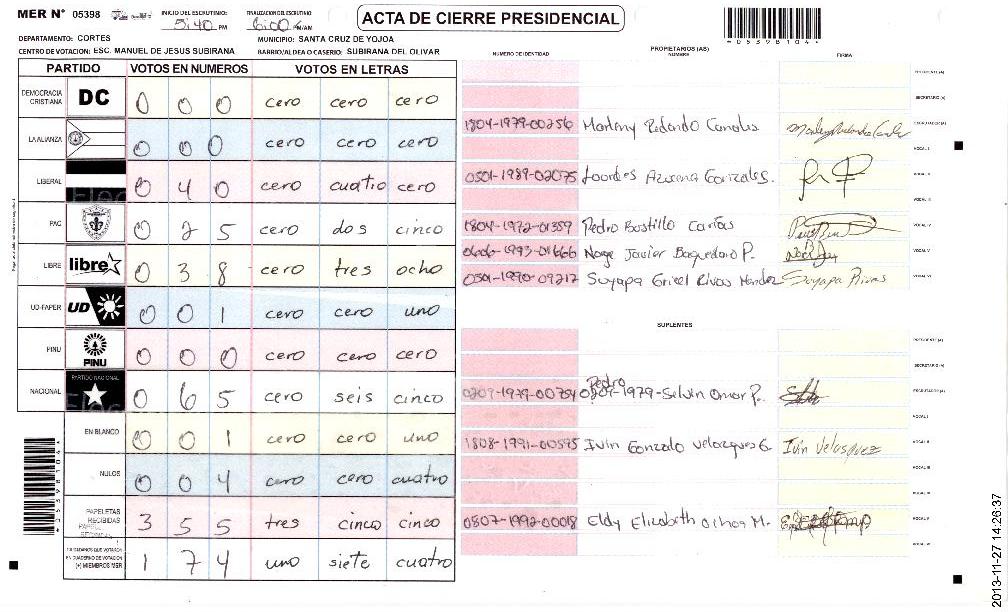 MER N° 05398
INICIO DEL ESCRUTINIO: 5:40 PM
FINALIZACION DEL ESCRUTINIO 6:00 PM/AM
ACTA DE CIERRE PRESIDENCIAL
*05398104*
DEPARTAMENTO: CORTES
MUNICIPIO: SANTA CRUZ DE YOJOA
CENTRO DE VOTACION: ESC. MANUEL DE JESUS SUBIRANA
BARRIO/ALDEA O CASERIO: SUBIRANA DEL OLIVAR
PARTIDO VOTOS EN NUMEROS VOTOS EN LETRAS
DEMOCRACIA CRISTIANA DC 0 0 0 cero cero cero
LA ALIANZA 0 0 0 cero cero cero
LIBERAL 0 4 0 cero cuatro cero
PAC 0 2 5 cero dos cinco
LIBRE libre 0 3 8 cero tres ocho
UD-FAPER UD 0 0 1 cero cero uno
PINU PINU 0 0 0 cero cero cero
NACIONAL PARTIDO NACIONAL 0 6 5 cero seis cinco
EN BLANCO 0 0 1 cero cero uno
NULOS 0 0 4 cero cero cuatro
PAPELETAS RECIBIDAS 3 5 5 tres cinco cinco
CIUDADANOS QUE VOTARON EN CUADERNO DE VOTACION (+) MIEMBROS MER 1 7 4 uno siete cuatro
*05398104*
NUMERO DE IDENTIDAD PROPIETARIOS (AS) NOMBRE FIRMA
PRESIDENTE (A)
SECRETARIO (A)
1804-1979-00256 Marleny Redondo Canales ESCRUTADOR (A)
VOCAL I
0501-1989-02075 Lourdes Azucena Gonzales. VOCAL II
VOCAL III
1804-1972-01359 Pedro Bustillo Cartas VOCAL IV
0606-1993-01666 Noge Javier Baquedano P. VOCAL V
0501-1990-09217 Suyapa Grisel Rivas Mendez Suyapa Rivas VOCAL VI
SUPLENTES
PRESIDENTE (A)
SECRETARIO (A)
Pedro
0209-1979-00754 0209-1979-Selvin Omar P. ESCRUTADOR (A)
VOCAL I
1808-1991-00595 Ivin Gonzalo Velazques G. Ivin Velasquez VOCAL II
VOCAL III
VOCAL IV
0807-1992-00018 Eldy Elizabeth Ochoa M. VOCAL V
VOCAL VI
2013-11-27 14:26:37